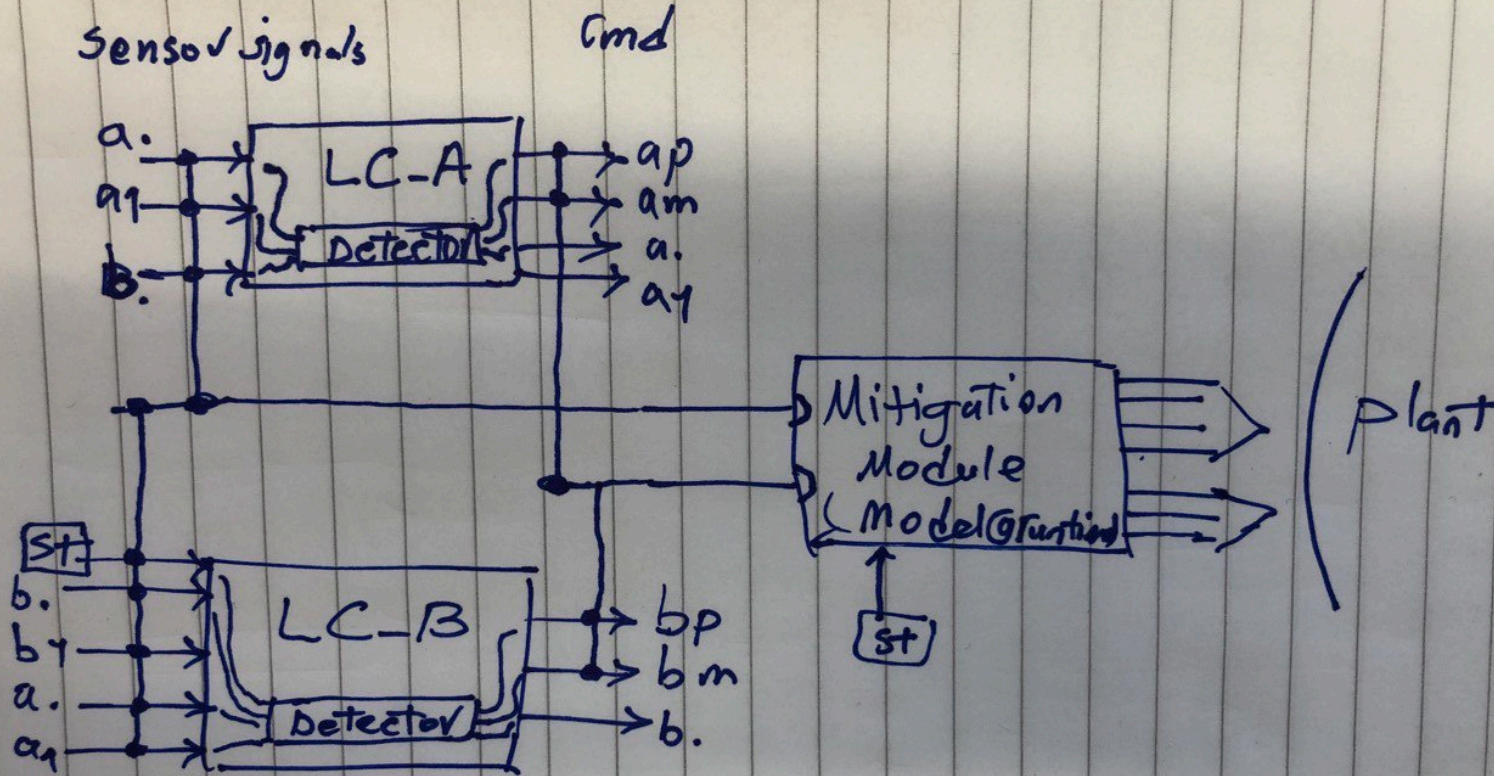 Sensor signals
Cmd
a.
a1
b.
LC-A
Detector
ap
am
a.
a1
Mitigation
Module
(Model@runtime)
Plant
st
st
b.
b1
a.
a1
LC-B
Detector
bp
bm
b.